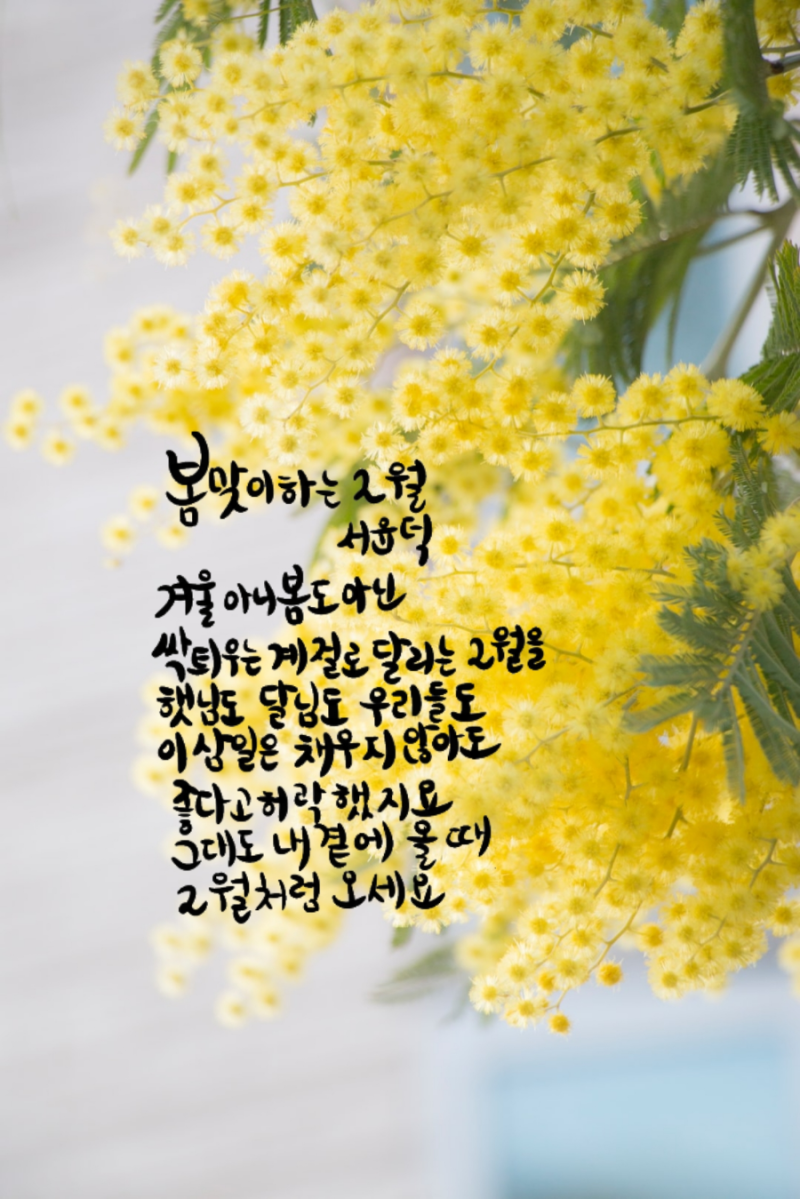 봄맞이하는 2월
서윤덕
겨울 아니 봄도 아닌
싹틔우는 계절로 달리는 2월을
햇님도 달님도 우리들도
이삼일은 채우지 않아도
좋다고 허락했지요
그대도 내 곁에 올 때
2월처럼 오세요